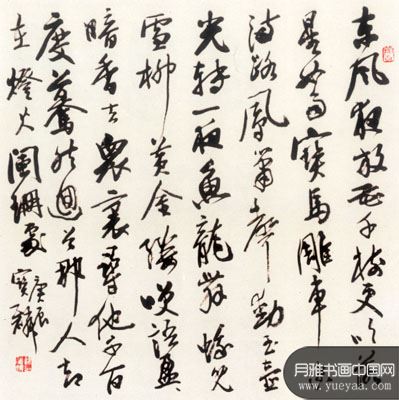 东風夜放花千树更吹落
星如雨寶馬雕車香
满路鳳簫聲動玉壺
光转一夜魚龍舞蛾兒
雪柳黄金缕笑語盈
暗香去衆裏尋他千百
度驀然迴首那人却
在燈火闌珊處
庚辰
月雅书画中国网
www.yueyaa.com